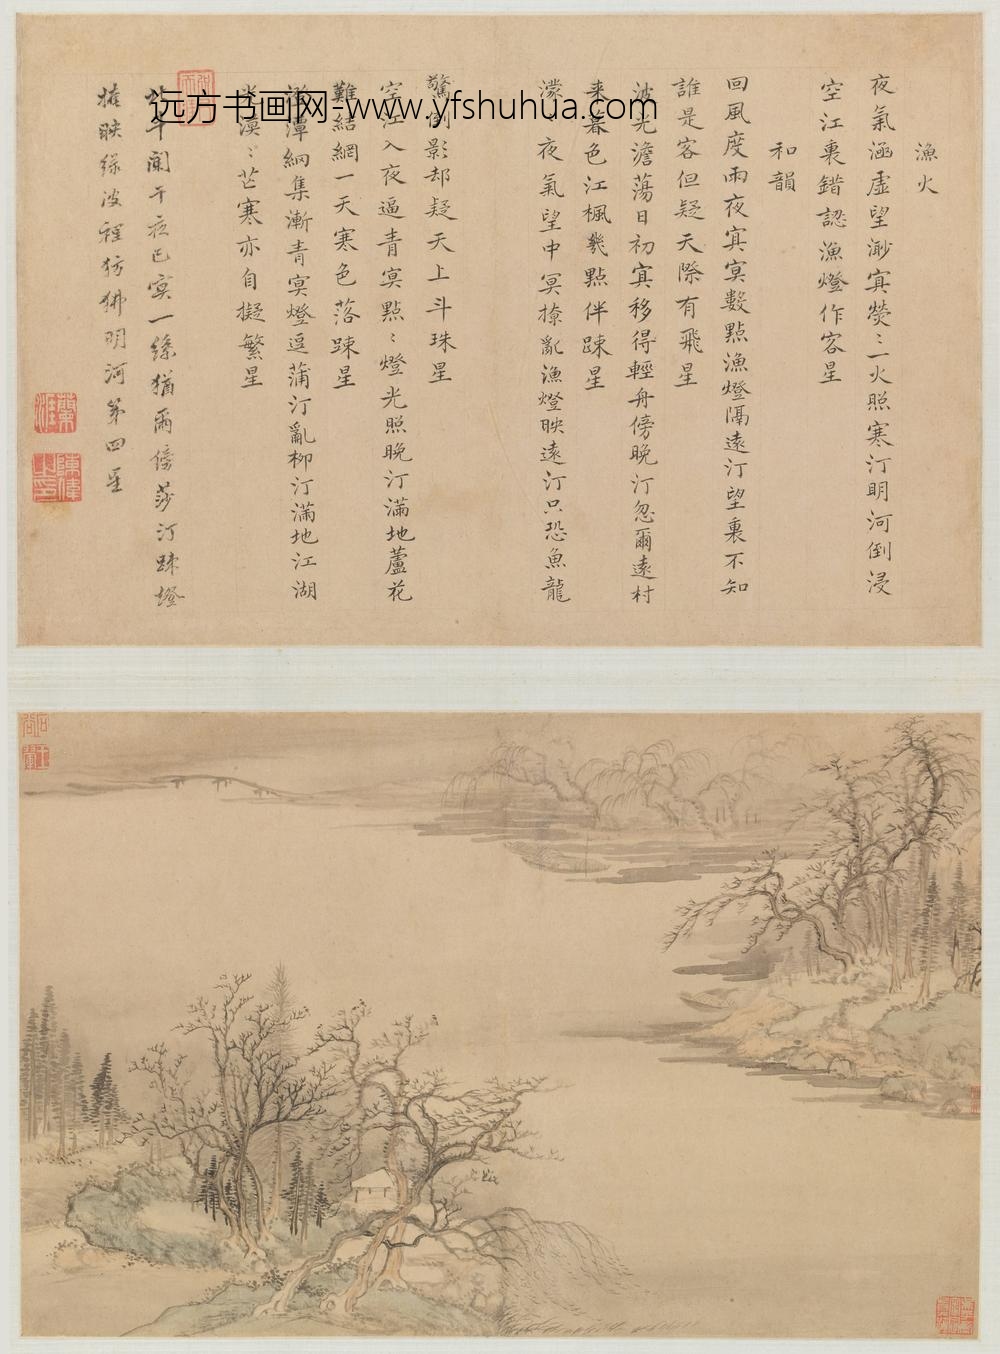 漁火
夜氣涵虛望渺寘熒〻一火照寒汀明河倒浸
空江裏錯認漁燈作客星
和韻
回風度雨夜寘寘數點漁燈隔遠汀望裏不知
誰是客但疑天際有飛星
波光澹蕩日初寘移得輕舟傍晚汀忽爾遠村
來暮色江楓幾點伴疎星
濛〻夜氣望中冥撩亂漁燈映遠汀只恐魚龍
驚倒影却疑天上斗珠星
空江入夜逼青寘點〻燈光照晚汀滿地蘆花
難結網一天寒色落疎星
潭網集漸青寘燈逗蒲汀亂柳汀滿地江湖
漠〻芒寒亦自擬繁星
北斗闌干夜已寘一絲猶爾傍莎汀疎燈
掩映綠波裡彷彿明河第四星
远方书画网-www.yfshuhua.com